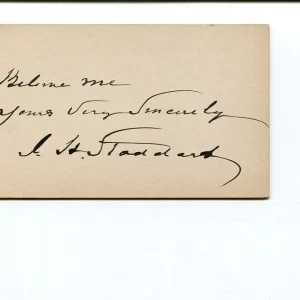 Believe me
Yours Very Sincerely
J. H. Stoddart